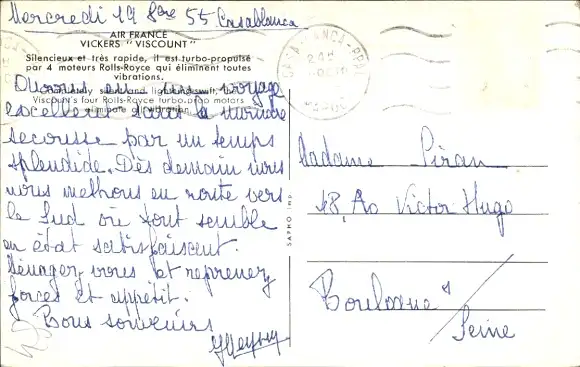 Mercredi 19 8bre 55 Casablanca
AIR FRANCE
VICKERS "VISCOUNT"
Silencieux et très rapide, il est turbo-propulsé
par 4 moteurs Rolls-Royce qui éliminent toutes
vibrations.
Viscount's four Rolls-Royce turbo-prop motors
eu un voyage
excellent sans la moindre
secousse par un temps
splendide. Dès demain nous
nous mettrons en route vers
le Sud où tout semble
en état satisfaisant.
Ménagez-vous et reprenez
forces et appétit.
Bons souvenirs
SAPHO IMP
Madame Piran
18, Av Victor Hugo
Boulogne s/
Seine